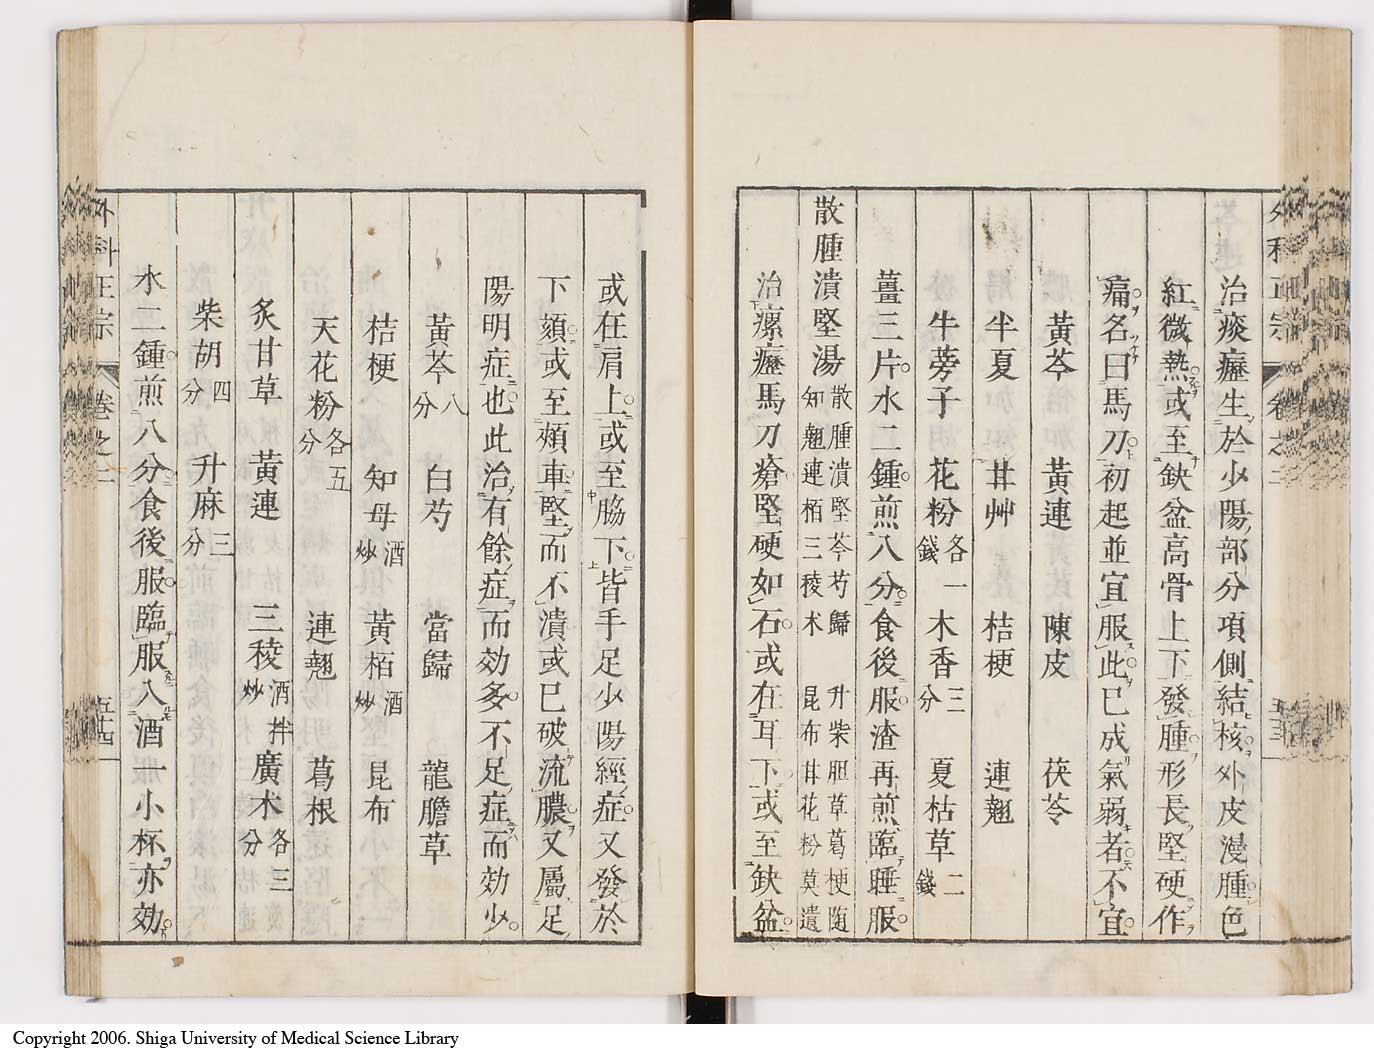 外科正宗 卷之二 五十三
治痰癧生於少陽部分項側結核外皮漫腫色
紅微熱或至缺盆高骨上下發腫形長堅硬作
痛名曰馬刀初起並宜服此已成氣弱者不宜
黃芩 黃連 陳皮 茯苓
半夏 甘艸 桔梗 連翹
牛蒡子 花粉各一錢 木香三分 夏枯草二錢
薑三片水二鍾煎八分食後服渣再煎臨睡服
散腫潰堅湯 散腫潰堅芩芍歸 升柴胆草葛梗随 知翹連栢三稜朮 昆布甘花粉莫遺
治瘰癧馬刀瘡堅硬如石或在耳下或至缺盆
或在肩上或至脇下皆手足少陽經症又發於
下頦或至頰車堅而不潰或已破流膿又屬足
陽明症也此治有餘症而効多不足症而効少
黃芩八分 白芍 當歸 龍膽草
桔梗 知母酒炒 黃栢酒炒 昆布
天花粉各五分 連翹 葛根
炙甘草 黃連 三稜酒拌炒 廣朮各三分
柴胡四分 升麻三分
水二鍾煎八分食後服臨服入酒一小杯亦効
外科正宗 卷之二 五十四
Copyright 2006. Shiga University of Medical Science Library